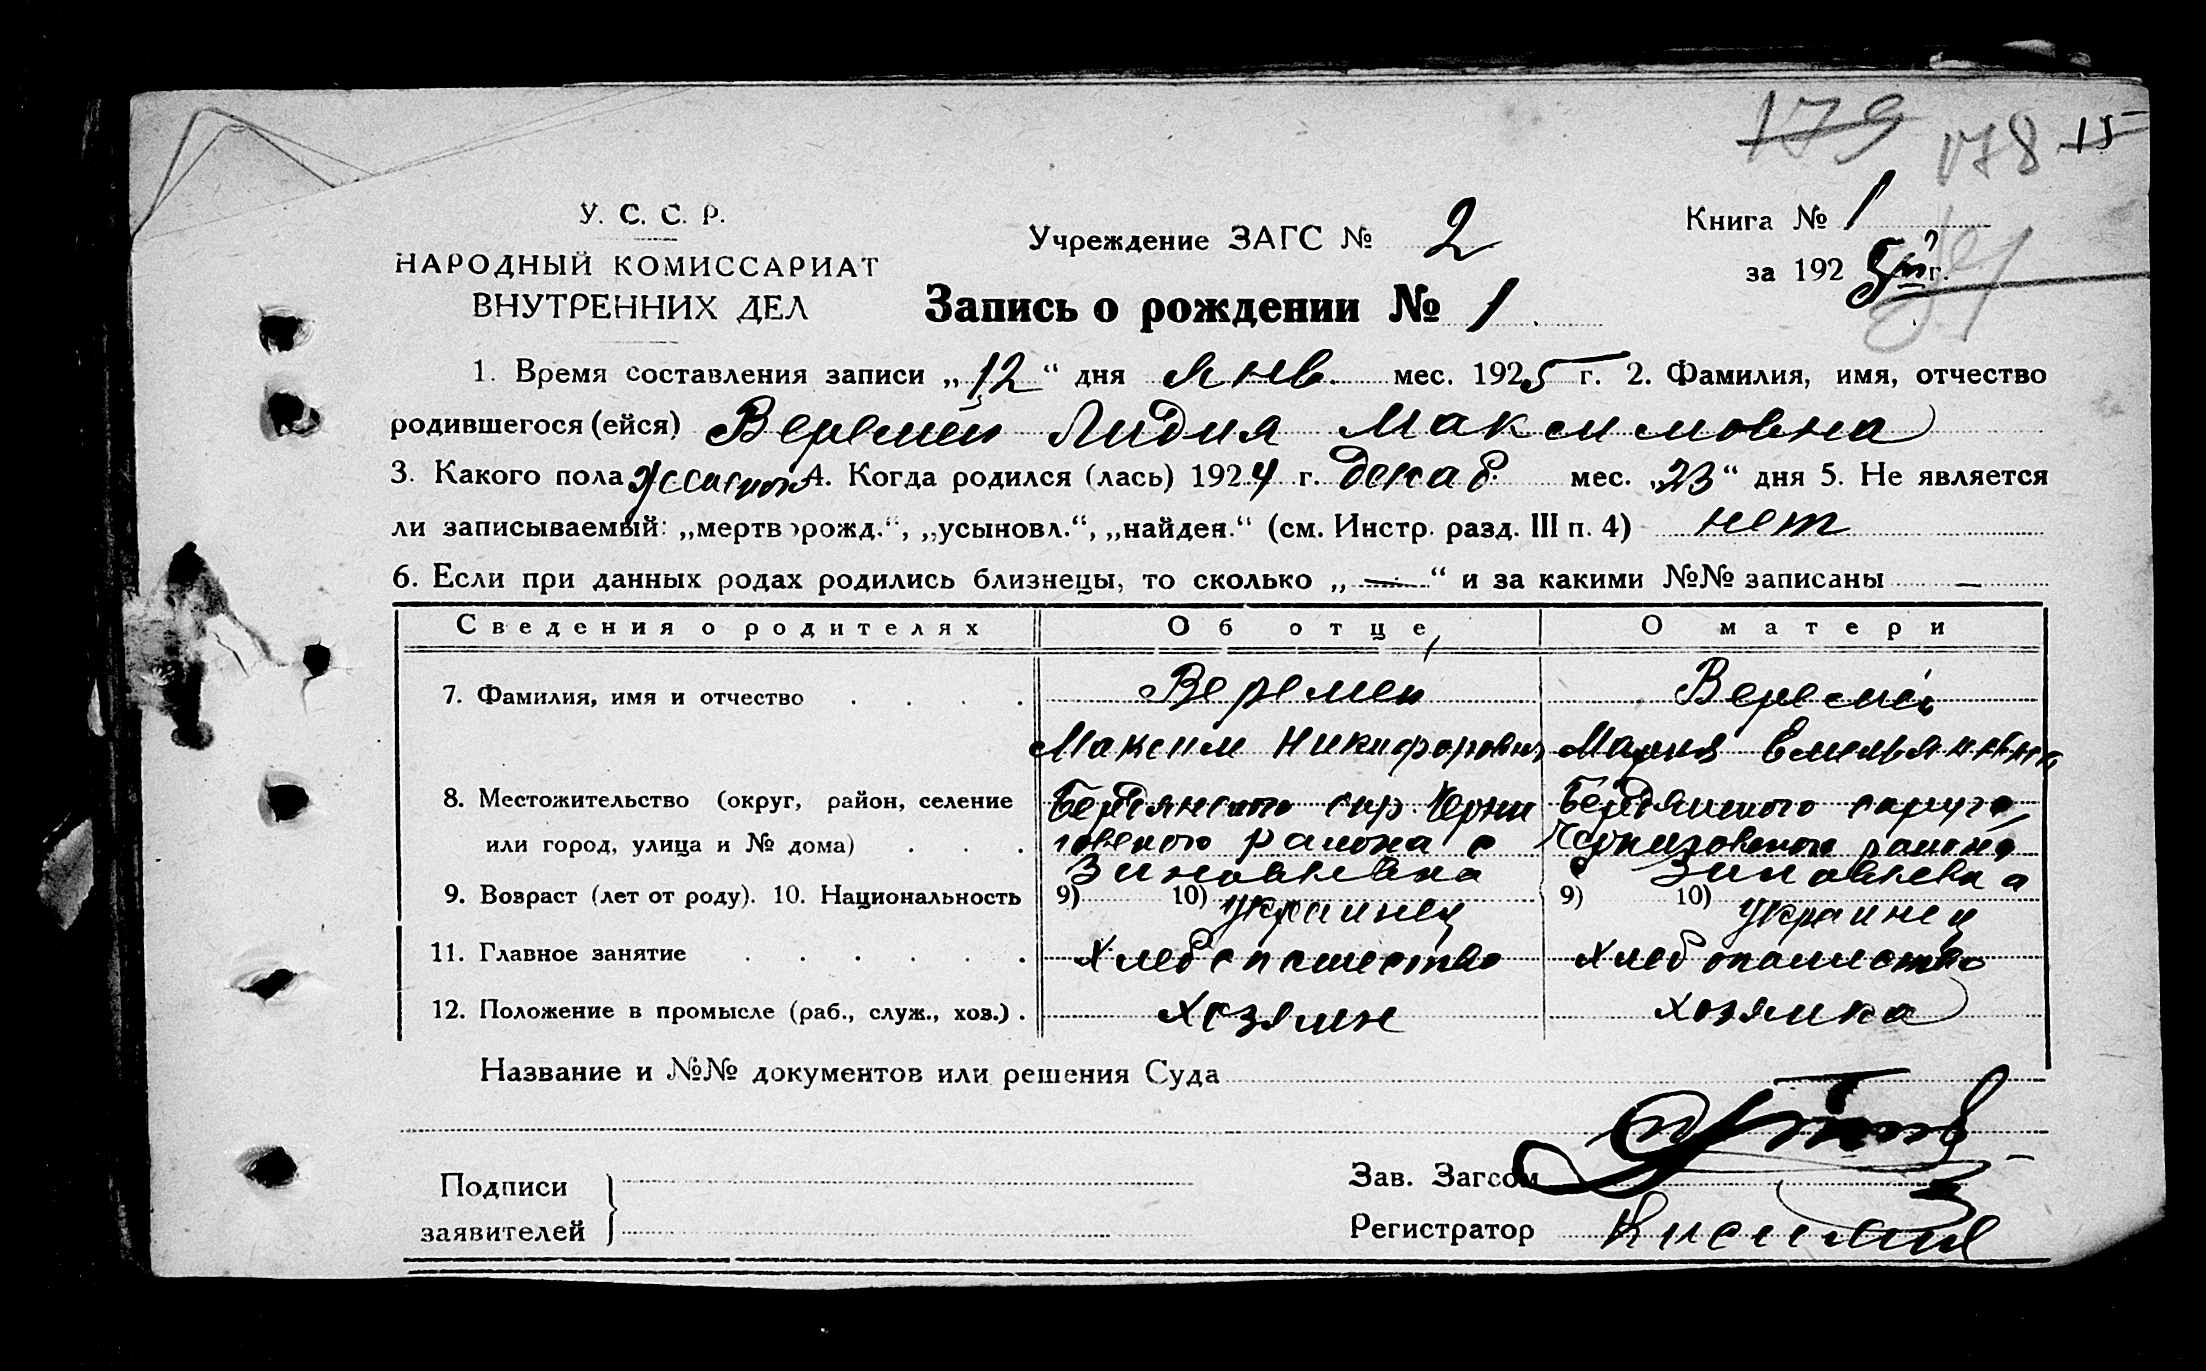 179 178 15
У. С. С. Р.
НАРОДНЫЙ КОМИССАРИАТ
ВНУТРЕННИХ ДЕЛ
Учреждение ЗАГС № 2
Книга № 1
за 192 5й г.
Запись о рождении № 1
1. Время составления записи „12“ дня Янв. мес. 1925 г. 2. Фамилия, имя, отчество
родившегося (ейся) Веремей Лидия Максимовна
3. Какого пола женской 4. Когда родился (лась) 1924 г. декаб. мес. „23“ дня 5. Не является
ли записываемый: „мертворожд.“, „усыновл.“, „найден.“ (см. Инстр. разд. III п. 4) нет
6. Если при данных родах родились близнецы, то сколько „—“ и за какими №№ записаны —
Сведения о родителях Об отце О матери
7. Фамилия, имя и отчество . . . . Веремей Веремей
Максим Никифорович Мария Емельяновна
8. Местожительство (округ, район, селение Бердянского окр. Черни Бердянского округа
или город, улица и № дома) . . . говского района с Черниговского района
Зиновьевка с Зиновьевка
9. Возраст (лет от роду). 10. Национальность 9) 10) украинец 9) 10) украинец
11. Главное занятие . . . . . . Хлебопашество Хлебопашество
12. Положение в промысле (раб., служ., хоз.) . хозяин хозяйка
Название и №№ документов или решения Суда
Подписи
заявителей
Зав. Загсом
Регистратор